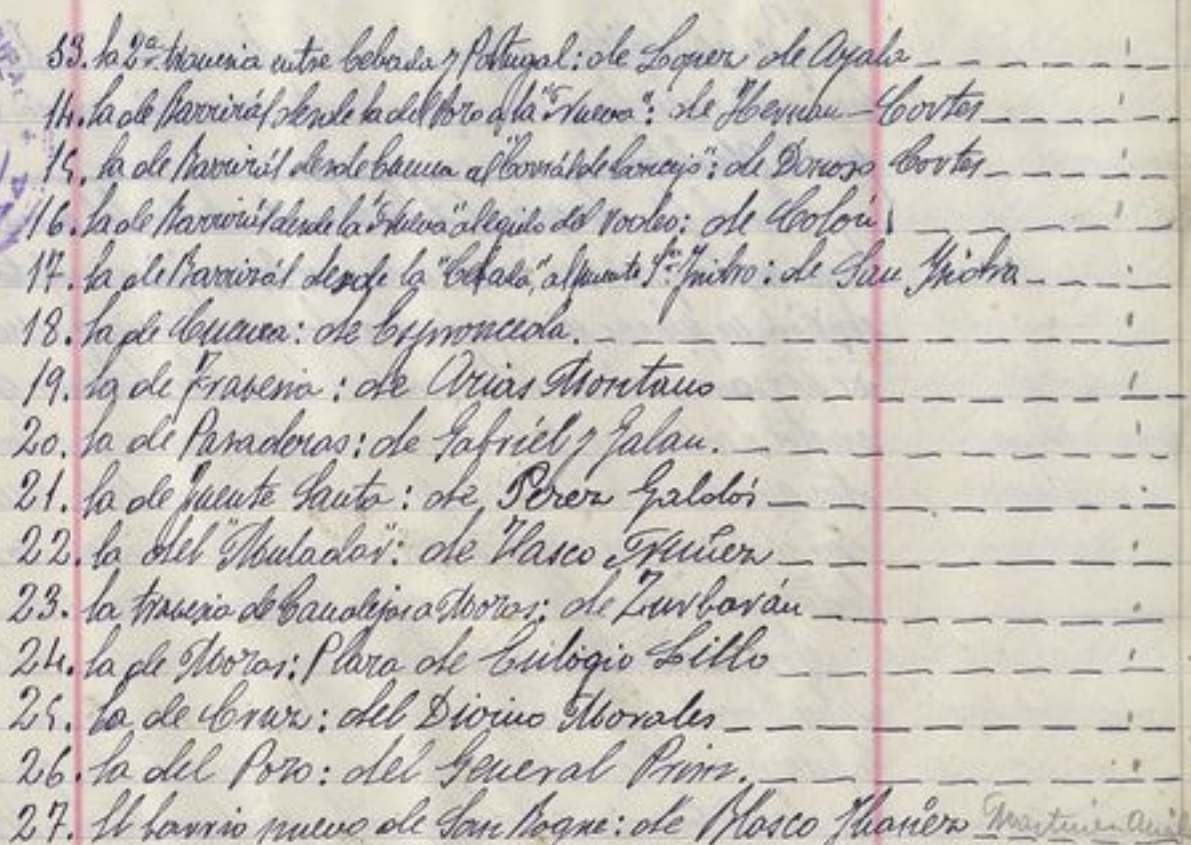 53. la 2ª travesia entre Cebada y Portugal: de Lopez de Ayala
14. la de Barrirál desde la del Pozo a la "Nueva": de Hernan-Cortes
15. la de Barrirál desde Cuenca al "Corrál de Concejo": de Donoso Cortes
16. la de Barrirál desde la "Nueva" al egido del rodeo: de Colón
17. la de Barrirál desde la "Cebada", al puente Sn. Ysidro: de San Ysidro
18. la de Cuenca: de Espronceda.
19. la de Travesia: de Arias Montano
20. la de Panaderas: de Gabriél y Galan.
21. la de Fuente Santa: de Perez Galdós
22. la del "Muladar": de Vasco Nuñez
23. la travesia de Canalejas a Moras: de Zurbarán
24. la de Moras: Plaza de Eulogio Lillo
25. la de Cruz: del Divino Morales
26. la del Pozo: del General Prim.
27. El barrio nuevo de San Roque: de Blasco Ibañez Martinez